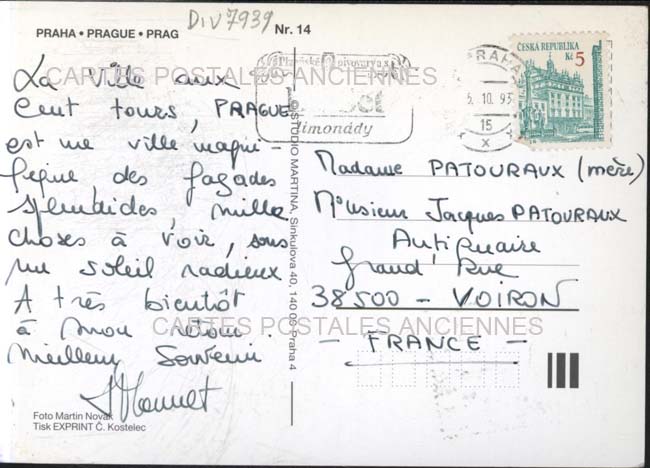 DIV7939
PRAHA • PRAGUE • PRAG
Nr. 14
La ville aux
Cent tours, PRAGUE
est une ville magni-
fique, des façades
splendides, mille
choses à voir, sous
un soleil radieux
A très bientôt
à mon retour.
Meilleur Souvenir
Foto Martin Novak
Tisk EXPRINT Č. Kostelec
© STUDIO MARTINA, Sinkulova 40, 140 00 Praha 4
Plzeňské pivovary a.s.
limonády
PRAHA
5. 10. 93
15
x
ČESKÁ REPUBLIKA
Kč 5
Madame PATOURAUX (mère)
Monsieur Jacques PATOURAUX
Antiquaire
Grand Rue
38500 - VOIRON
- FRANCE -
CARTES POSTALES ANCIENNES
CARTES POSTALES ANCIENNES